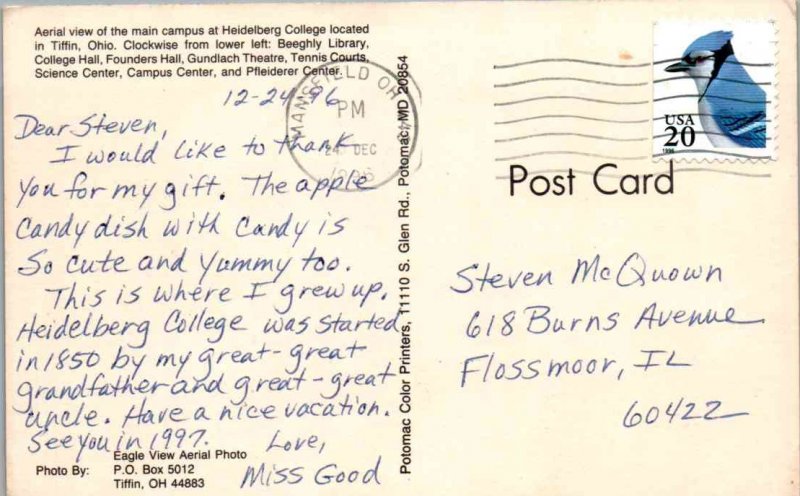 Aerial view of the main campus at Heidelberg College located
in Tiffin, Ohio. Clockwise from lower left: Beeghly Library,
College Hall, Founders Hall, Gundlach Theatre, Tennis Courts,
Science Center, Campus Center, and Pfleiderer Center.
12-24-96
Dear Steven,
I would like to thank
you for my gift. The apple
candy dish with candy is
so cute and yummy too.
This is where I grew up.
Heidelberg College was started
in 1850 by my great-great
grandfather and great-great
uncle. Have a nice vacation.
See you in 1997.
Love,
Miss Good
Eagle View Aerial Photo
Photo By: P.O. Box 5012
Tiffin, OH 44883
Potomac Color Printers, 11110 S. Glen Rd., Potomac, MD 20854
MANSFIELD OH
PM
24 DEC
1996
USA
20
1996
Post Card
Steven McQuown
618 Burns Avenue
Flossmoor, IL
60422